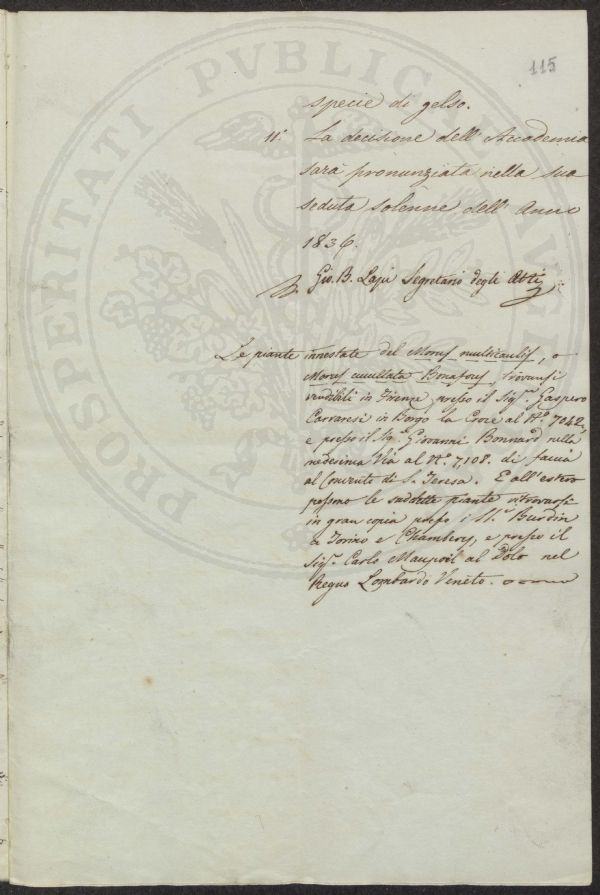 115
specie di gelso.
11.° La decisione dell'Accademia
sarà pronunziata nella sua
seduta solenne dell'Anno
1836.
Gio. B. Lapi Segretario degli Atti
Le piante innestate del Morus multicaulis, o
Morus cucullata Bonafous, trovansi
vendibili in Firenze presso il Sig.r Gaspero
Carraresi in Borgo la Croce al N.° 7042,
e presso il Sig.r Giovanni Bonnard nella
medesima Via al N.° 7108. di faccia
al Convento di S. Teresa. E all'estero
possono le suddette piante ritrovarsi
in gran copia presso i SS.ri Burdin
a Torino e Chambery, e presso il
Sig.r Carlo Maupoil al Dolo nel
Regno Lombardo Veneto.
PROSPERITATI PVBLICAE AVGENDAE